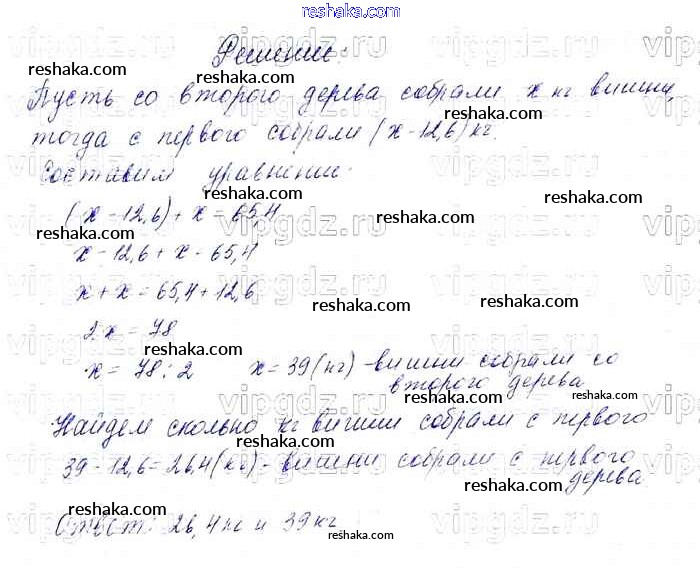 reshaka.com
Решение:
Пусть со второго дерева собрали x кг вишни,
тогда с первого собрали (x-12,6) кг.
Составим уравнение:
(x-12,6)+x=65,4
x-12,6+x=65,4
x+x=65,4+12,6
2x=78
x=78:2 x=39(кг)-вишни собрали со
второго дерева
Найдем сколько кг вишни собрали с первого
39-12,6=26,4(кг)-вишни собрали с первого
дерева
Ответ: 26,4кг и 39кг